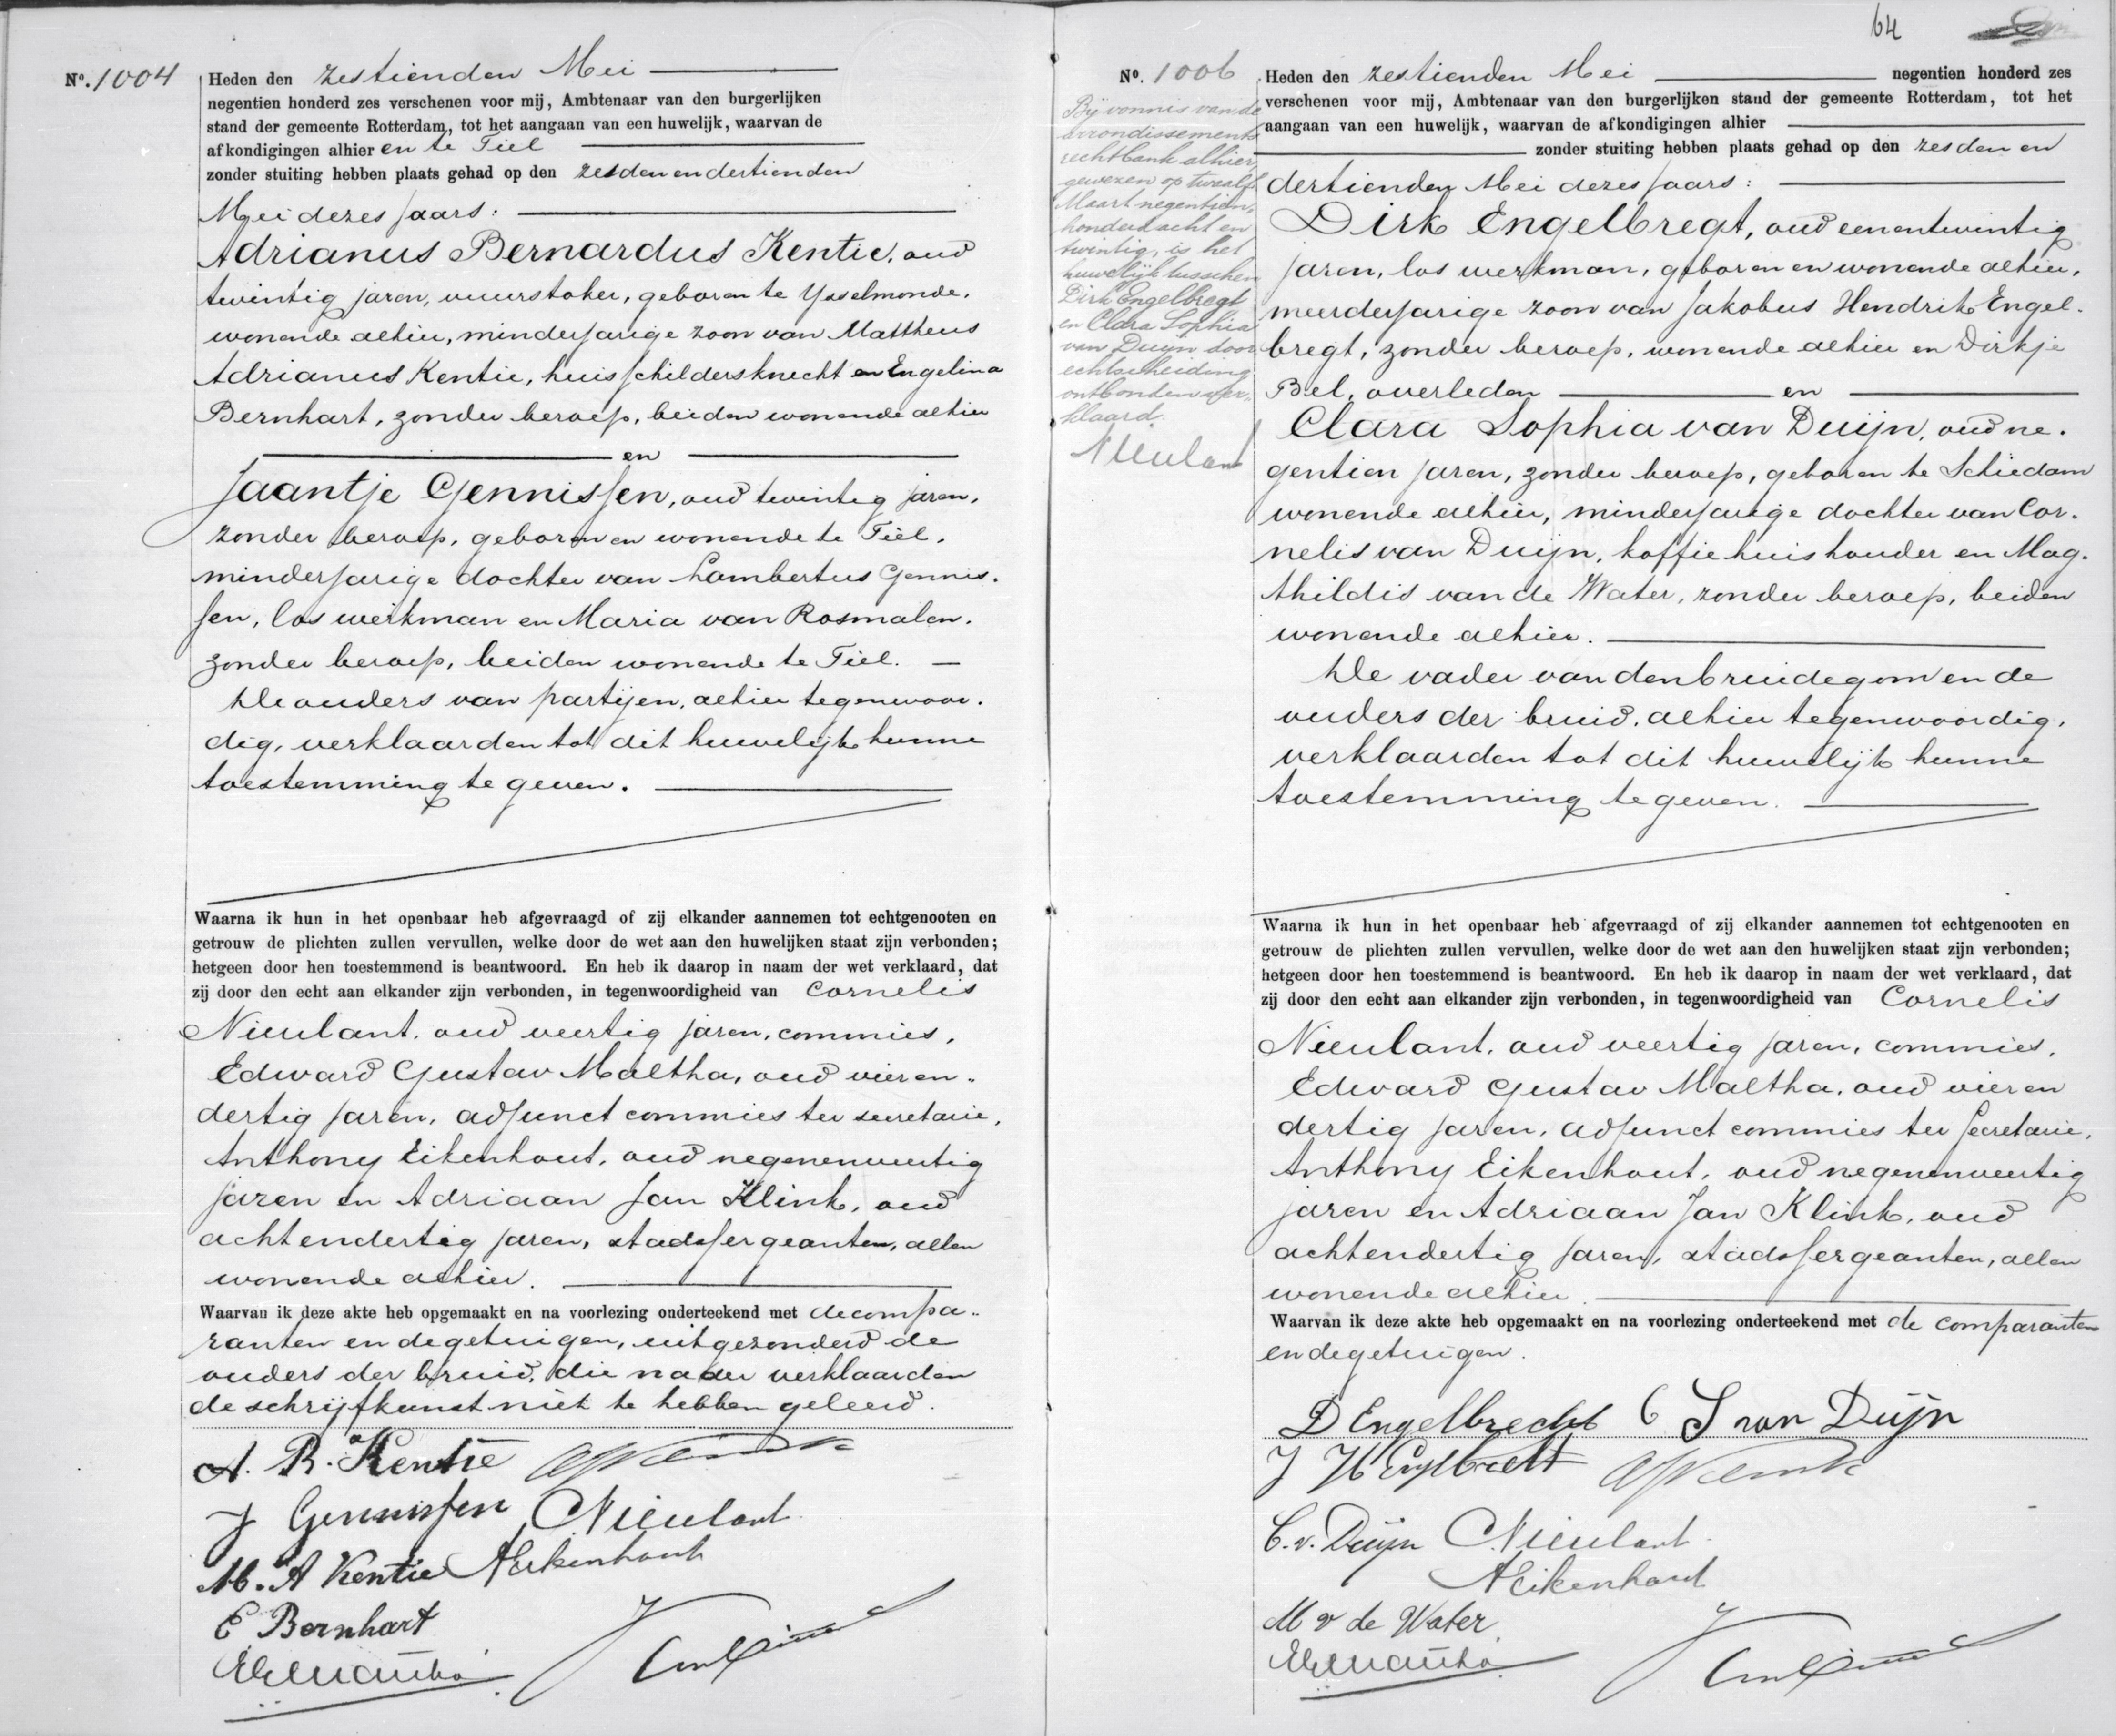 No. 1004
Heden den zestienden Mei
negentien honderd zes verschenen voor mij, Ambtenaar van den burgerlijken
stand der gemeente Rotterdam, tot het aangaan van een huwelijk, waarvan de
afkondigingen alhier en te Tiel
zonder stuiting hebben plaats gehad op den zesden en dertienden
Mei dezes jaars:
Adrianus Bernardus Kentie, oud
twintig jaren, vuurstoker, geboren te Ysselmonde,
wonende alhier, minderjarige zoon van Mattheus
Adrianus Kentie, huisschildersknecht en Engelina
Bernhart, zonder beroep, beiden wonende alhier
en
Jaantje Gennissen, oud twintig jaren,
zonder beroep, geboren en wonende te Tiel,
minderjarige dochter van Lambertus Gennis-
sen, los werkman en Maria van Rosmalen,
zonder beroep, beiden wonende te Tiel.
De ouders van partijen, alhier tegenwoor-
dig, verklaarden tot dit huwelijk hunne
toestemming te geven.
Waarna ik hun in het openbaar heb afgevraagd of zij elkander aannemen tot echtgenooten en
getrouw de plichten zullen vervullen, welke door de wet aan den huwelijken staat zijn verbonden;
hetgeen door hen toestemmend is beantwoord. En heb ik daarop in naam der wet verklaard, dat
zij door den echt aan elkander zijn verbonden, in tegenwoordigheid van Cornelis
Nieulant, oud veertig jaren, commies,
Edward Gustav Maltha, oud vieren-
dertig jaren, adjunct commies ter secretarie,
Anthony Eikenhout, oud negenenveertig
jaren en Adriaan Jan Klink, oud
achtendertig jaren, stadssergeanten, allen
wonende alhier.
Waarvan ik deze akte heb opgemaakt en na voorlezing onderteekend met de compa-
ranten en de getuigen, uitgezonderd de
ouders der bruid, die nader verklaarden
de schrijfkunst niet te hebben geleerd.
A. B. Kentie AJKlink
J Gennissen CNieulant
M. A Kentie AEikenhout
E Bernhart
EGMaltha
64
No. 1006
Heden den zestienden Mei negentien honderd zes
verschenen voor mij, Ambtenaar van den burgerlijken stand der gemeente Rotterdam, tot het
aangaan van een huwelijk, waarvan de afkondigingen alhier
zonder stuiting hebben plaats gehad op den zesden en
dertienden Mei dezes jaars:
Dirk Engelbregt, oud eenentwintig
jaren, los werkman, geboren en wonende alhier,
meerderjarige zoon van Jakobus Hendrik Engel-
bregt, zonder beroep, wonende alhier en Dirkje
Bel, overleden en
Clara Sophia van Duijn, oud ne-
gentien jaren, zonder beroep, geboren te Schiedam
wonende alhier, minderjarige dochter van Cor-
nelis van Duijn, koffiehuishouder en Mag-
thildis van de Water, zonder beroep, beiden
wonende alhier.
De vader van den bruidegom en de
ouders der bruid, alhier tegenwoordig,
verklaarden tot dit huwelijk hunne
toestemming te geven.
Bij vonnis van de
arrondissements
rechtbank alhier,
gewezen op twaalf
Maart negentien-
honderd acht en
twintig, is het
huwelijk tusschen
Dirk Engelbregt
en Clara Sophia
van Duijn door
echtscheiding
ontbonden ver-
klaard.
Nieulant
Waarna ik hun in het openbaar heb afgevraagd of zij elkander aannemen tot echtgenooten en
getrouw de plichten zullen vervullen, welke door de wet aan den huwelijken staat zijn verbonden;
hetgeen door hen toestemmend is beantwoord. En heb ik daarop in naam der wet verklaard, dat
zij door den echt aan elkander zijn verbonden, in tegenwoordigheid van Cornelis
Nieulant, oud veertig jaren, commies,
Edward Gustav Maltha, oud vieren
dertig jaren, adjunct commies ter secretarie,
Anthony Eikenhout, oud negenenveertig
jaren en Adriaan Jan Klink, oud
achtendertig jaren, stadssergeanten, allen
wonende alhier
Waarvan ik deze akte heb opgemaakt en na voorlezing onderteekend met de comparanten
en de getuigen.
D Engelbrecht C S van Duijn
J H Engelbrecht AJKlink
C. v. Duijn CNieulant
AEikenhout
M v de Water
EGMaltha